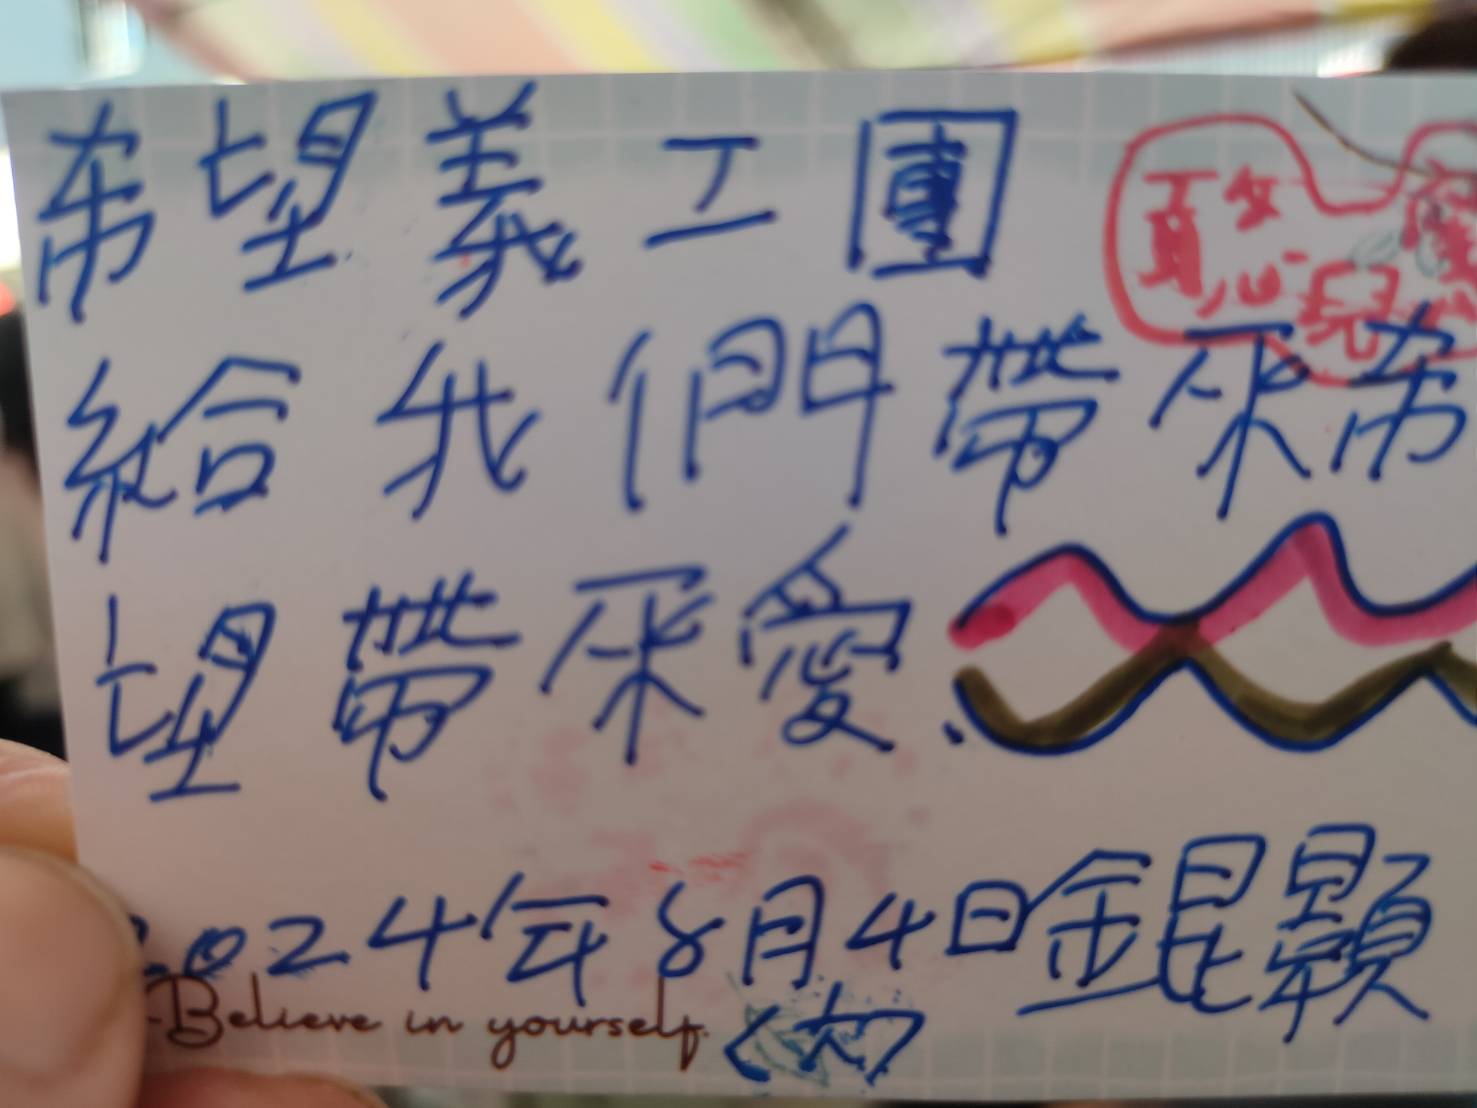 希望義工團
給我們帶來希
望帶來愛.
2024年8月4日錕顯
Believe in yourself.